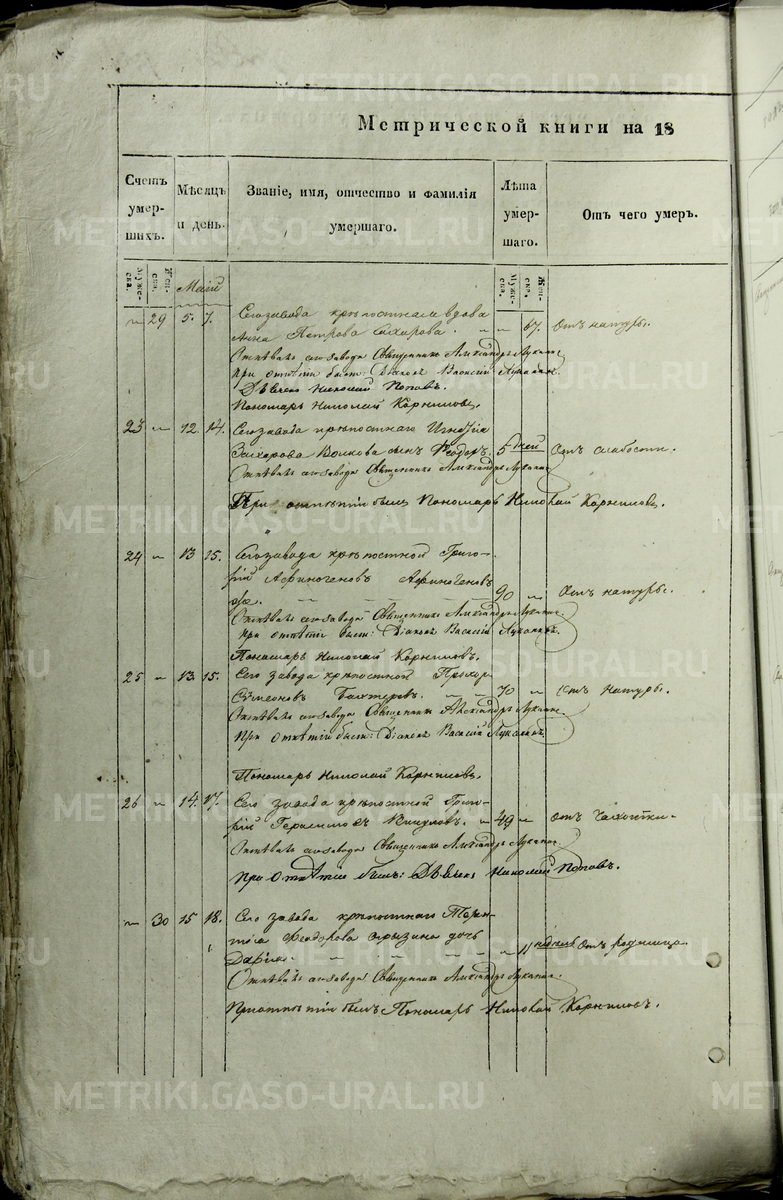 Метрической книги на 18
Счетъ умер-шихъ. Мѣсяцъ и день. Званіе, имя, отчество и фамилія умершаго. Лѣта умер-шаго. Отъ чего умеръ.
Муже-ска. Жен-ска. Муже-ска. Жен-ска.
Маій
29 5. 7. Сего завода крѣпостная вдова
Анна Петрова 67. Отъ натуры.
Отпѣвалъ сего завода Священникъ Александръ Луканинъ
при отпѣтіи были: Діаконъ Василій
Дьячекъ Николай Поповъ.
Пономарь Николай Корниловъ.
23 12. 14. Сего завода крѣпостнаго Игнатія
Захарова Волкова сынъ Ѳеодоръ. 5 дней Отъ слабости.
Отпѣвалъ сего завода Священникъ Александръ Луканинъ
При отпѣтіи былъ Пономарь Николай Корниловъ.
24 13 15. Сего завода крѣпостной Григо-
рій Афиногеновъ Афиногеновъ
же. 90 Отъ натуры.
Отпѣвалъ сего завода Священникъ Александръ Луканинъ.
при отпѣтіи были: Діаконъ Василій Луканинъ.
Пономарь Николай Корниловъ.
25 13 15. Сего завода крѣпостной Прохор
Сѵмеоновъ Бахтеревъ. 70 Отъ натуры.
Отпѣвалъ сего завода Священникъ Александръ Луканинъ
При отпѣтіи были: Діаконъ Василій Луканинъ
Пономарь Николай Корниловъ.
26 14. 17. Сего завода крѣпостной Григо-
рій Герасимовъ Викуловъ. 49 Отъ чахотки.
Отпѣвалъ сего завода Священникъ Александръ Луканинъ
При отпѣтіи былъ: Дьячекъ Николай Поповъ.
30 15 18. Сего завода крѣпостнаго Терен-
тія Ѳеодорова дочь
Дарья. 11 недель Отъ родимца.
Отпѣвалъ сего завода Священникъ Александръ Луканинъ.
При отпѣтіи былъ Пономарь Николай Корниловъ.
METRIKI.GASO-URAL.RU